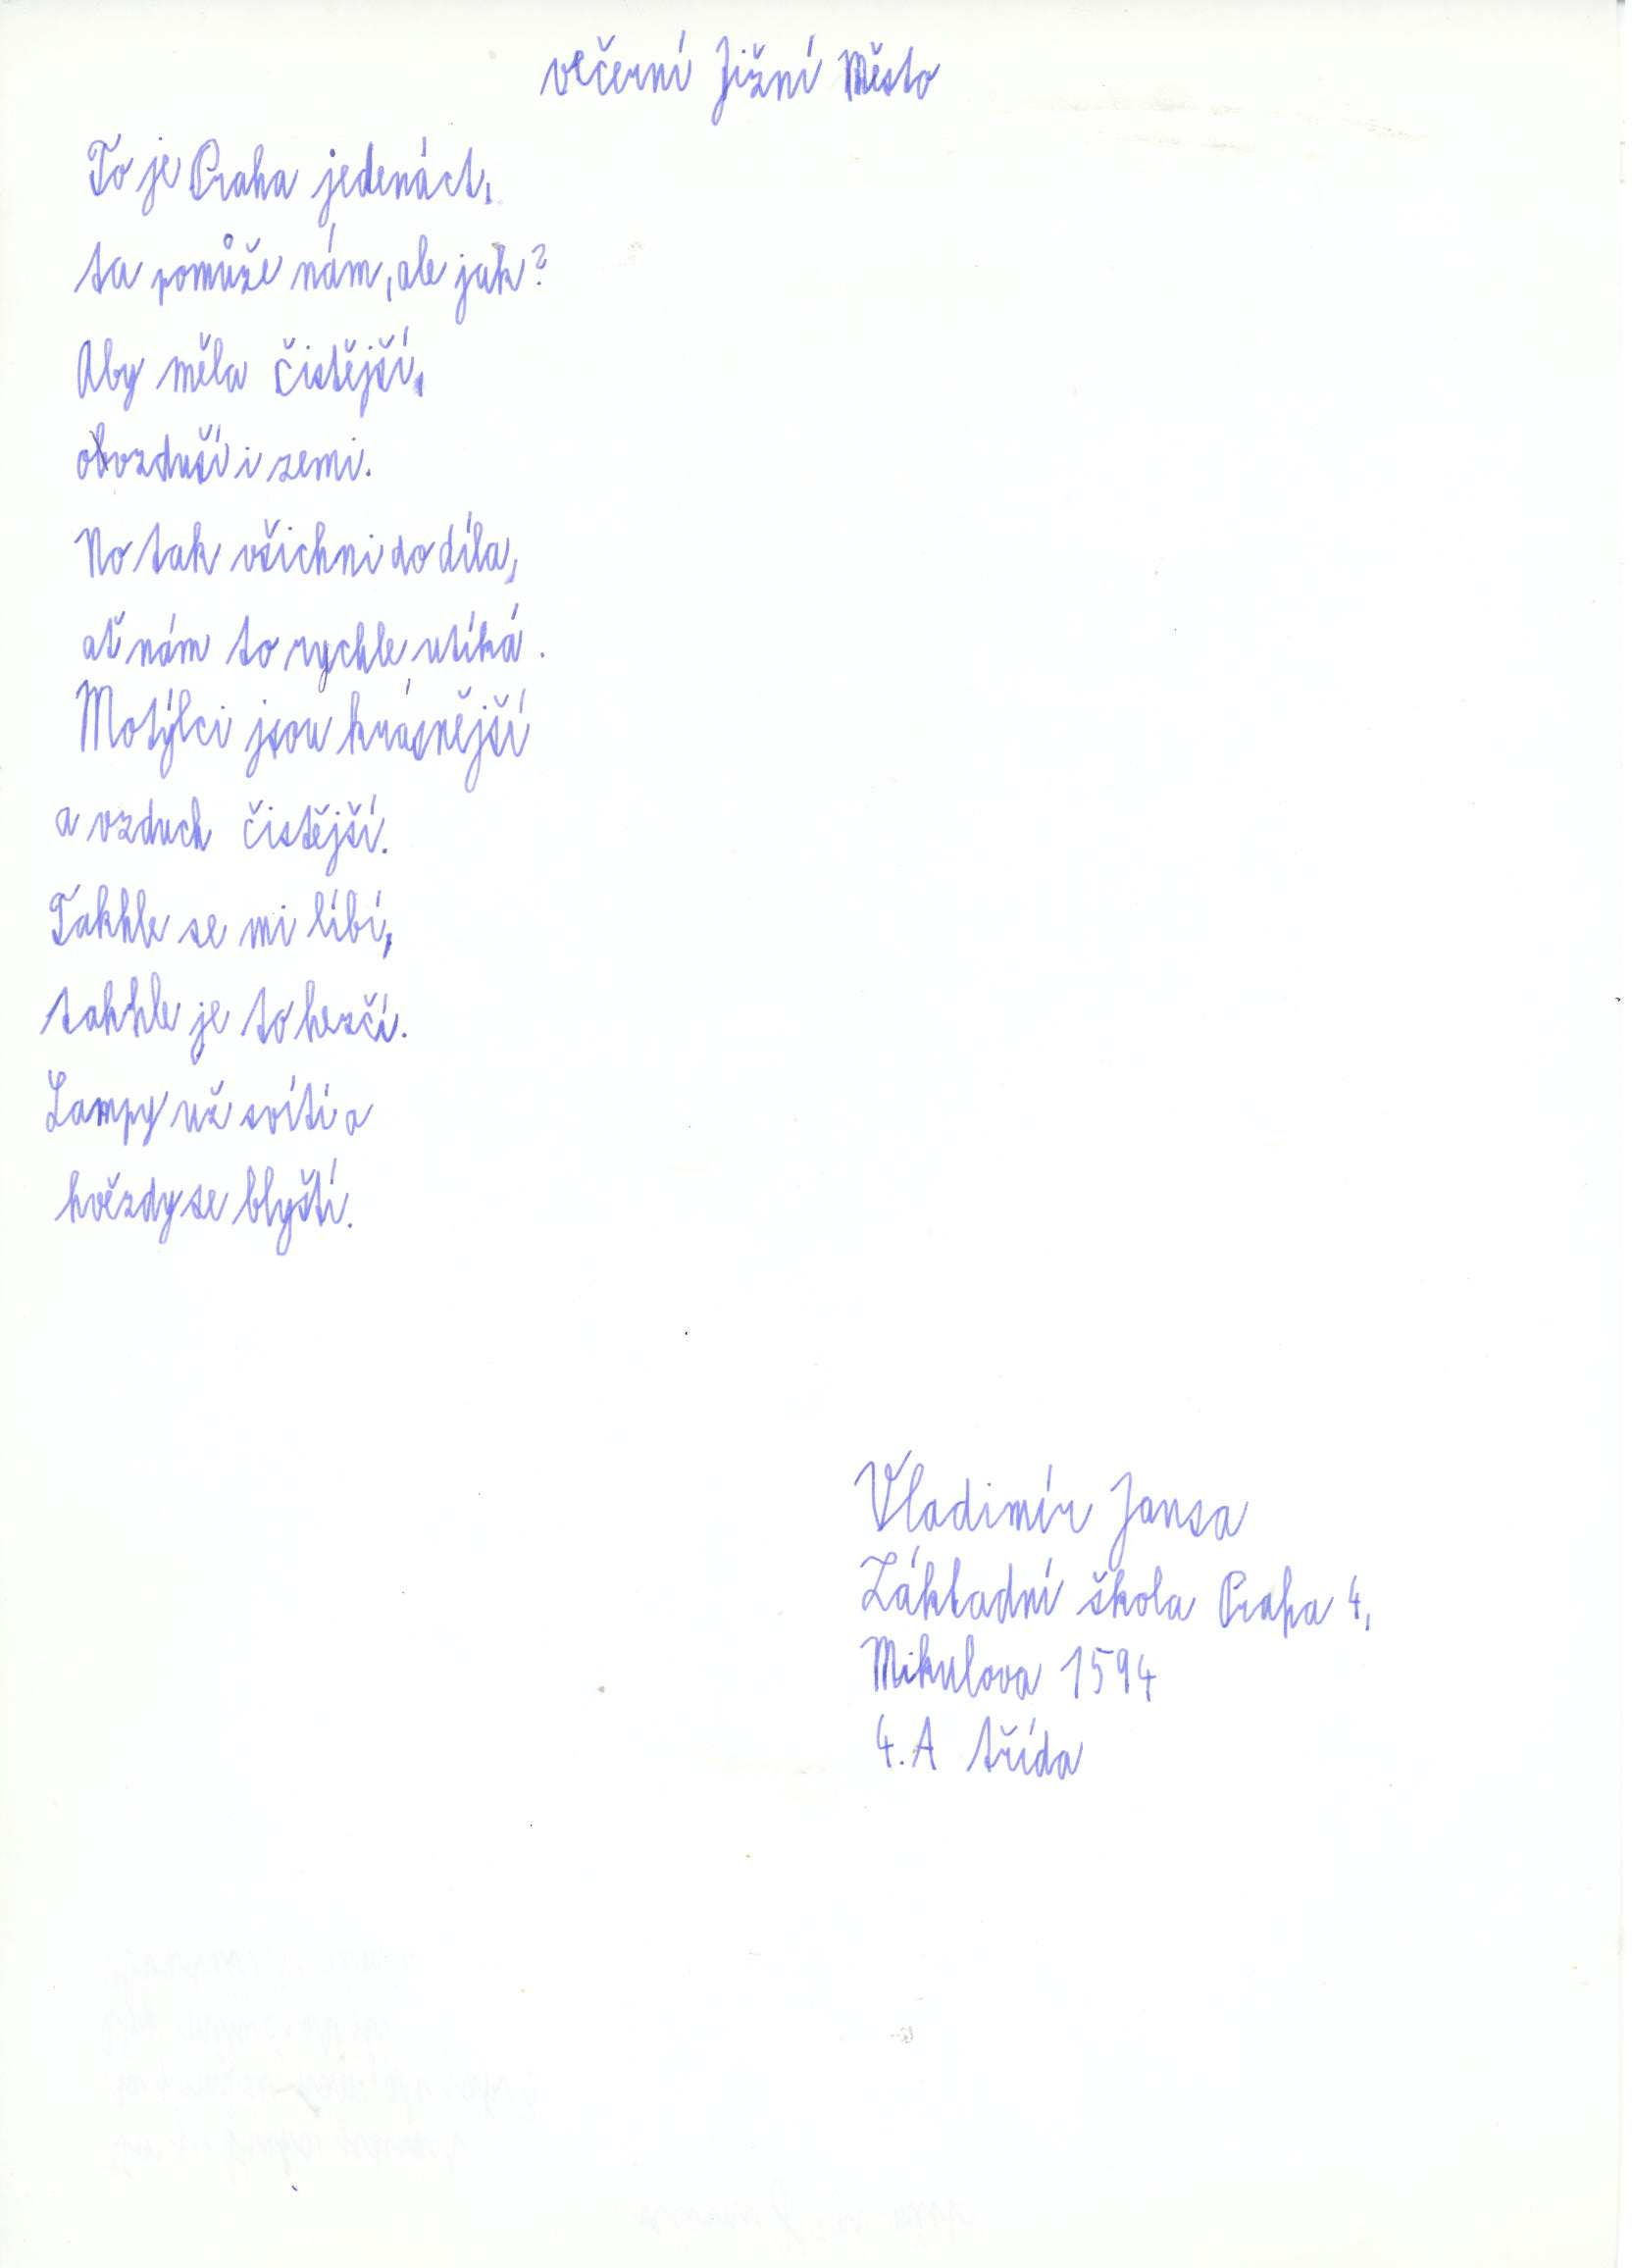 večerní Jižní Město
To je Praha jedenáct,
ta pomůže nám, ale jak?
Aby měla čistější,
ovzduší i zemi.
No tak všichni do díla,
ať nám to rychle utíká.
Motýlci jsou krásnější
a vzduch čistější.
Takhle se mi líbí,
takhle je to hezčí.
Lampy už svítí a
hvězdy se blyští.
Vladimír Jansa
Základní škola Praha 4,
Mikulova 1594
4.A třída